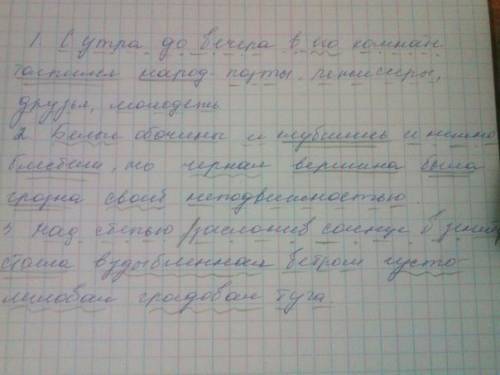 1. С утра до вечера в его комнат
толпился народ порты, режиссеры,
друзья, молодежь
2. Белые обочины и клубились и нежно
блистали, но черная вершина была
грозна своей неподвижностью.
3. Над степью заслонив солнце в зените
стояла вздыбленная ветром густо-
лиловая градовая туча